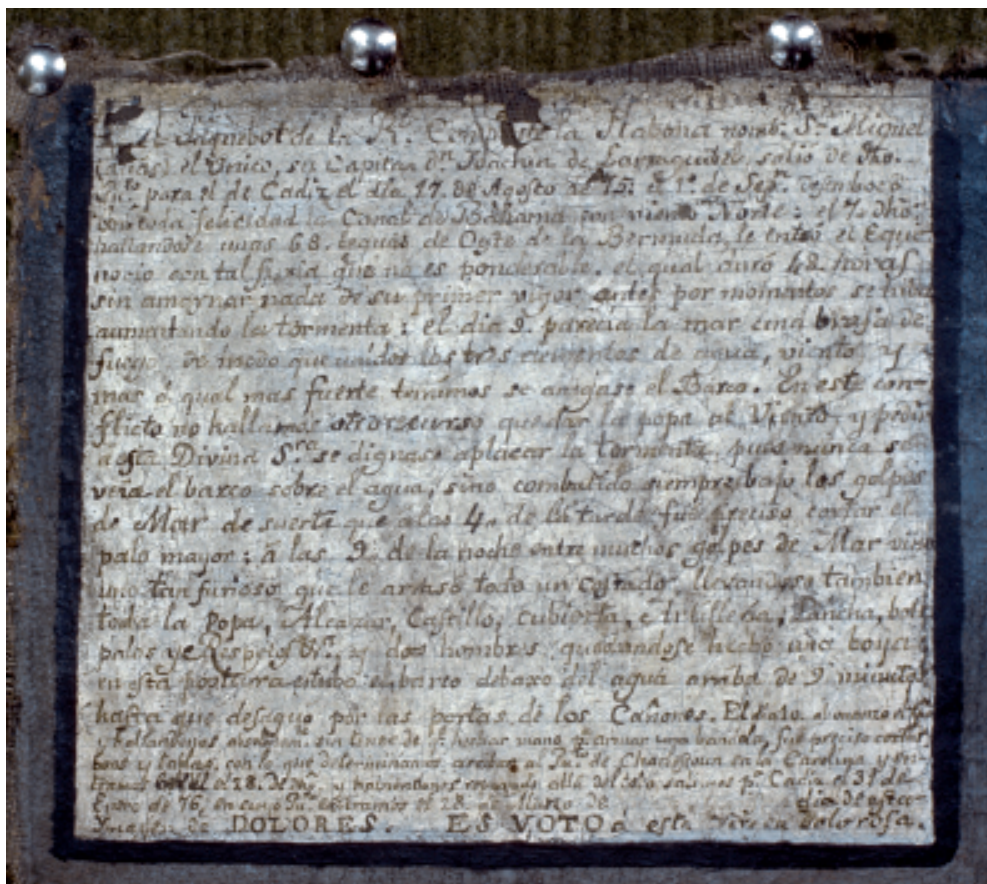 El Paquebot de la Rl. Compa. de la Habana nomb. Sn. Miguel
(alias) el Unico, su Capitan Dn. Joachin de Larraguibel, salio de dho.
Pto. para el de Cadiz el dia 17. de Agosto de 75. el 1º. de Sepe. desemboco
con toda felicidad la Canal de Bahama con viento Norte: el 7. dho.
hallandose unas 68. leguas de Oeste de la Bermuda, le entró el Equi
nocio con tal furia que no es ponderable. el qual duró 48. horas
sin amaynar nada de su primer vigor antes por momentos se iba
aumentando la tormenta: el dia 9. parecia la mar una braza de
fuego, de modo que unidos los tres elementos de agua, viento y
mas á qual mas fuerte temimos se anegase el Barco. En este con-
flicto no hallamos otro recurso que dar la popa al Viento y pedir
a esta Divina Sra. se dignase aplacar la tormenta, pues nunca se
veia el barco sobre el agua, sino combatido siempre bajo los golpes
de Mar de suerte que a las 4. de la tarde fue preciso cortar el
palo mayor: á las 9. de la noche entre muchos golpes de Mar vino
uno tan furioso que le arraso todo un costado, llevandose tambien
toda la Popa, Alcazar, Castillo, cubierta, e Artilleria, Lancha, bote
palos y Respetos &c. y dos hombres, quedandose hecho una boya:
en esta postura estubo el barco debaxo del agua arriba de 9 minutos
hasta que desaguo por las portas de los Cañones. El dia 10. al
y hallandonos sin fue preciso
y tablas, con lo que determinamos arribar al Pto. de Charlestown en la Carolina y
el 28. de dho. y habiendonos salimos pa. Cadiz el 31 de
Enero de 76, en cuyo Pto. entramos el 28. de Marzo de dia de esta
Ymagen de DOLORES. ES VOTO a esta Virgen dolorosa.